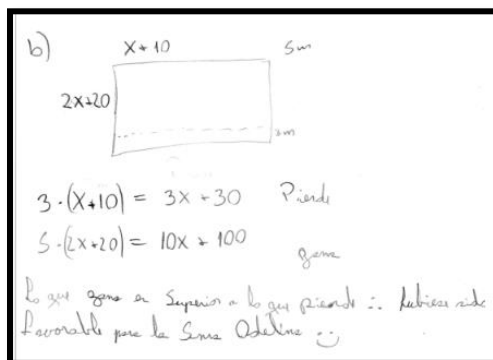 b)
x+10
5m
2x+20
3m
3·(x+10) = 3x+30 Pierde
5·(2x+20) = 10x+100
gana
Lo que gana es Superior a lo que pierde ∴ hubiese sido
favorable para la Senra Odelina :)